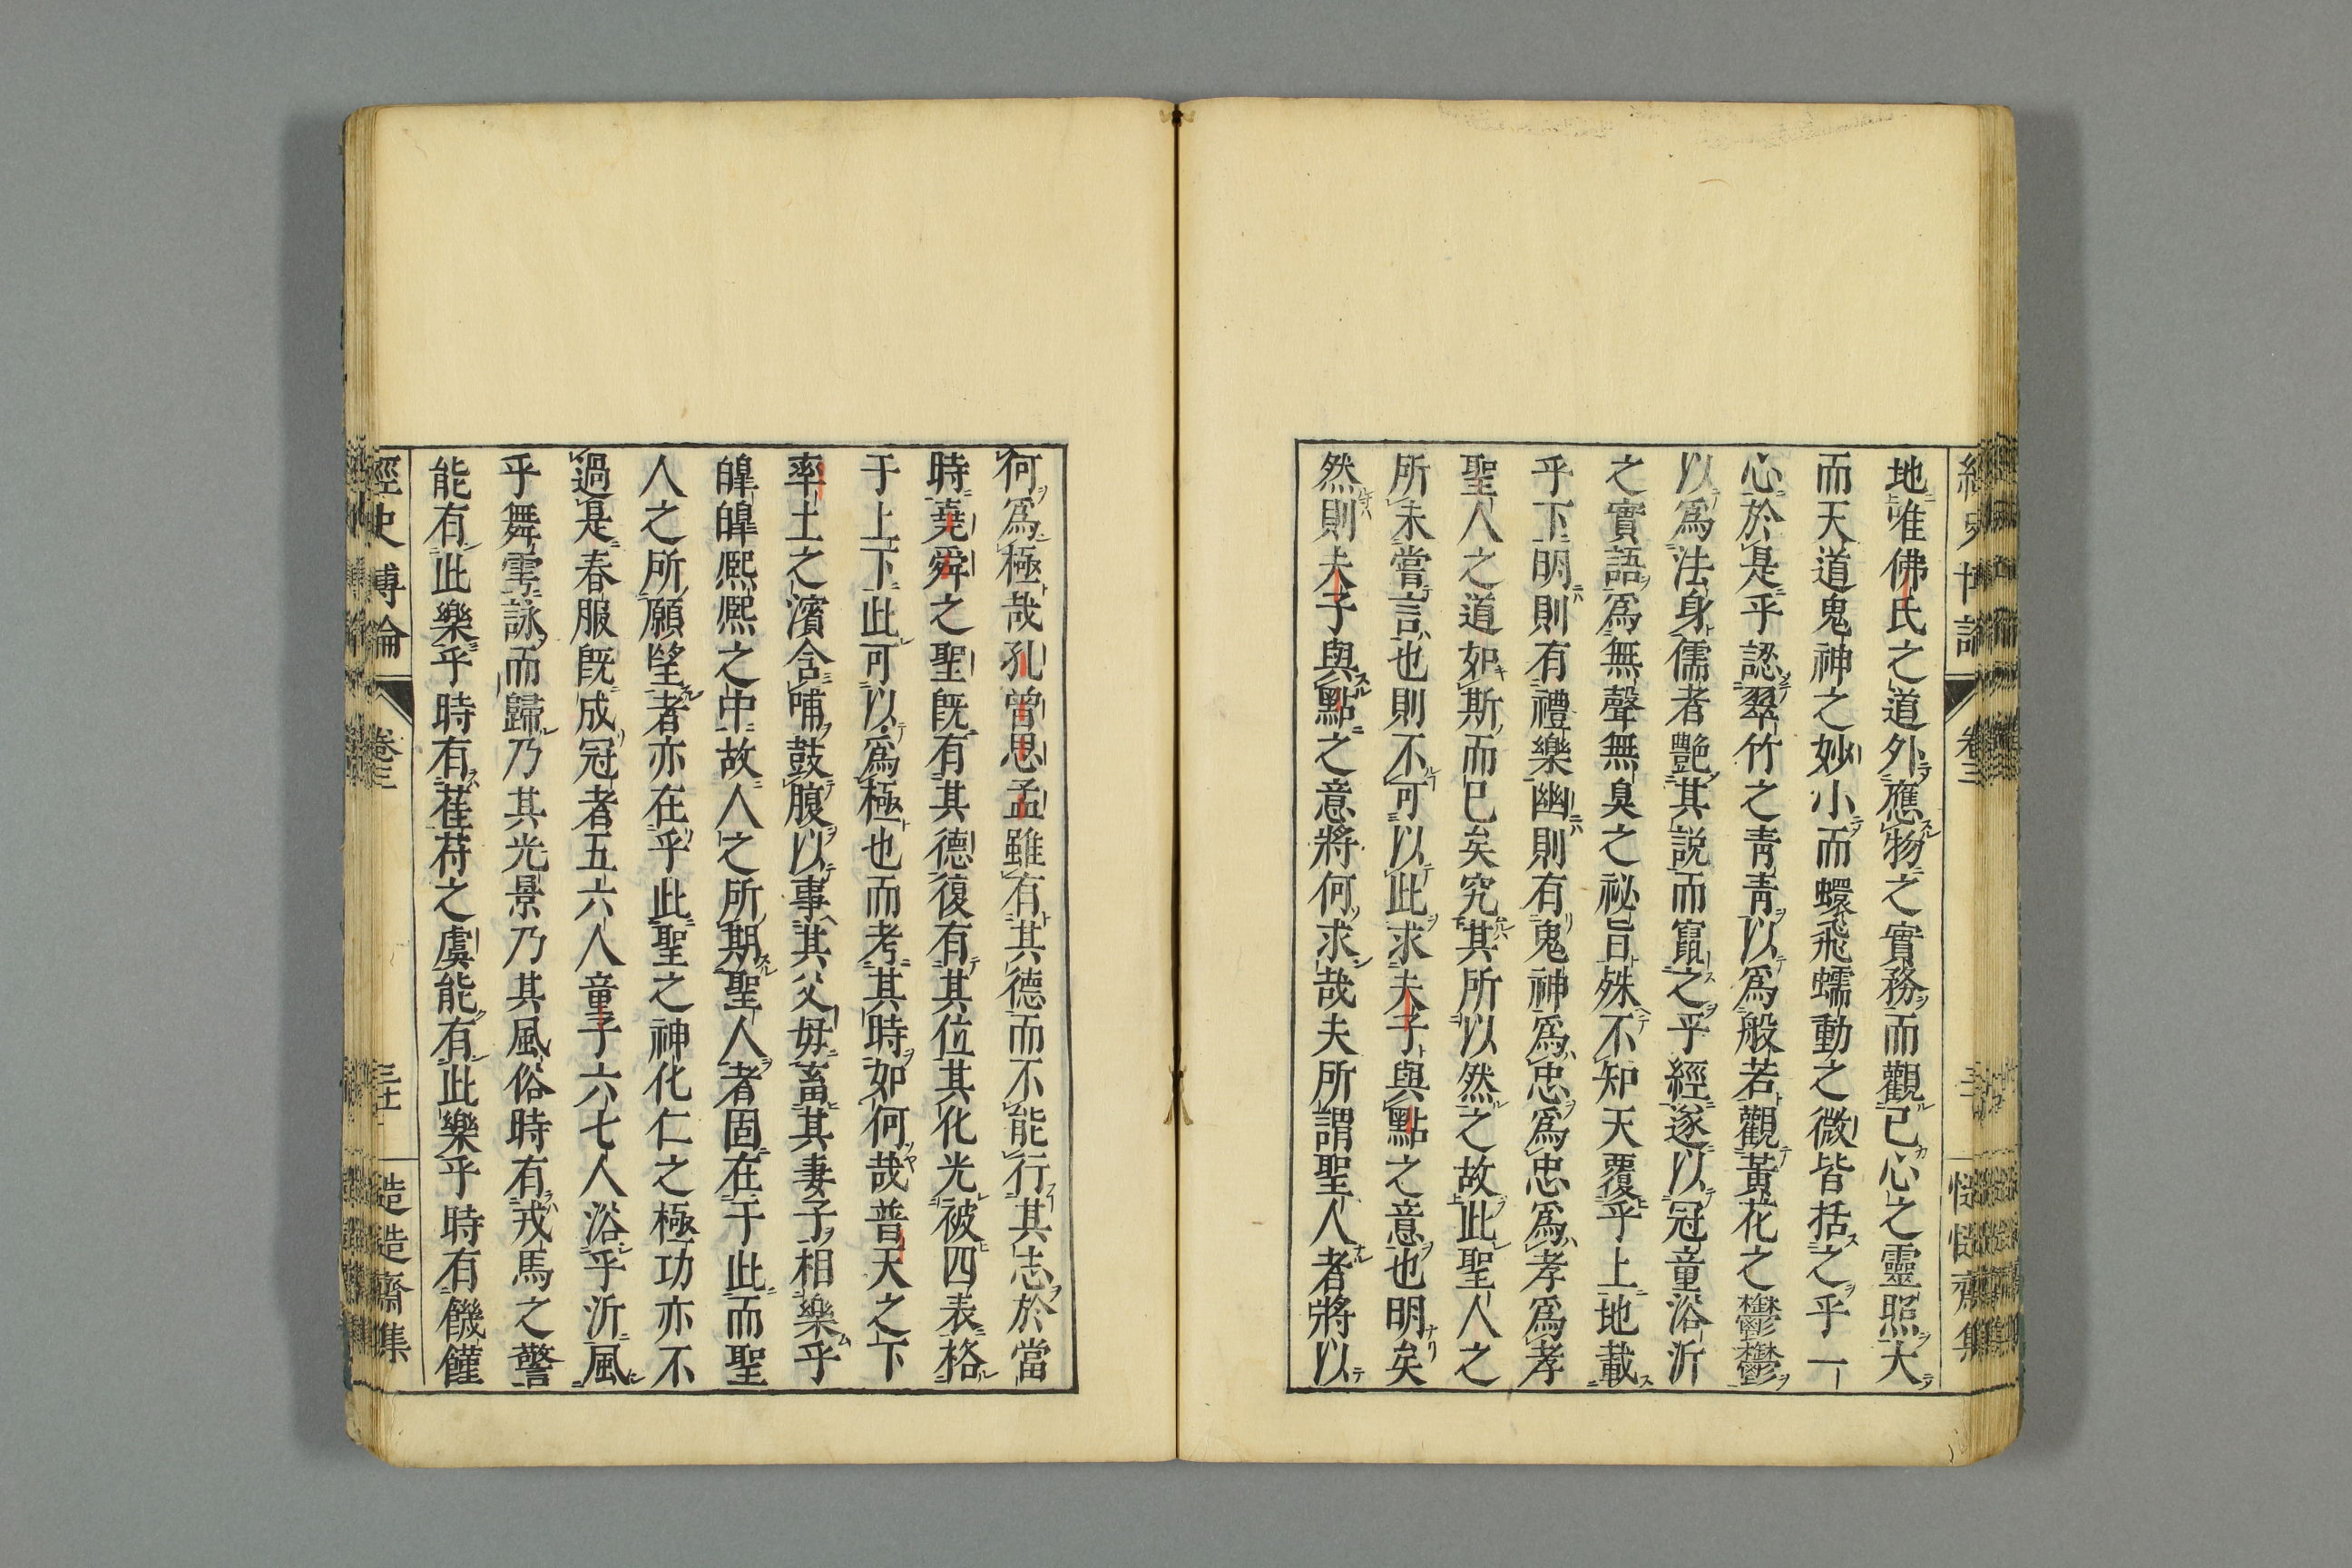 地唯佛氏之道外應物之實務而觀已心之靈照大
而天道鬼神之妙小而蠉飛蠕動之微皆括之乎一
心於是乎認翠竹之青青以爲般若觀黃花之鬱鬱
以爲法身儒者艷其説而竄之乎經遂以冠童浴沂
之實語爲無聲無臭之祕旨殊不知天覆乎上地載
乎下明則有禮樂幽則有鬼神爲忠爲忠爲孝爲孝
聖人之道如斯而已矣究其所以然之故此聖人之
所未嘗言也則不可以此求夫子與點之意也明矣
然則夫子與點之意將何求哉夫所謂聖人者將以
何爲極哉孔曾思孟雖有其德而不能行其志於當
時堯舜之聖旣有其德復有其位其化光被四表格
于上下此可以爲極也而考其時如何哉普天之下
率土之濱含哺鼓腹以事其父母畜其妻子相樂乎
皥皥熈熈之中故人之所期聖人者固在于此而聖
人之所願望者亦在乎此聖之神化仁之極功亦不
過是春服旣成冠者五六人童子六七人浴乎沂風
乎舞雩詠而歸乃其光景乃其風俗時有戎馬之警
能有此樂乎時有萑苻之虞能有此樂乎時有饑饉
經史博論 卷三 慥慥齋集